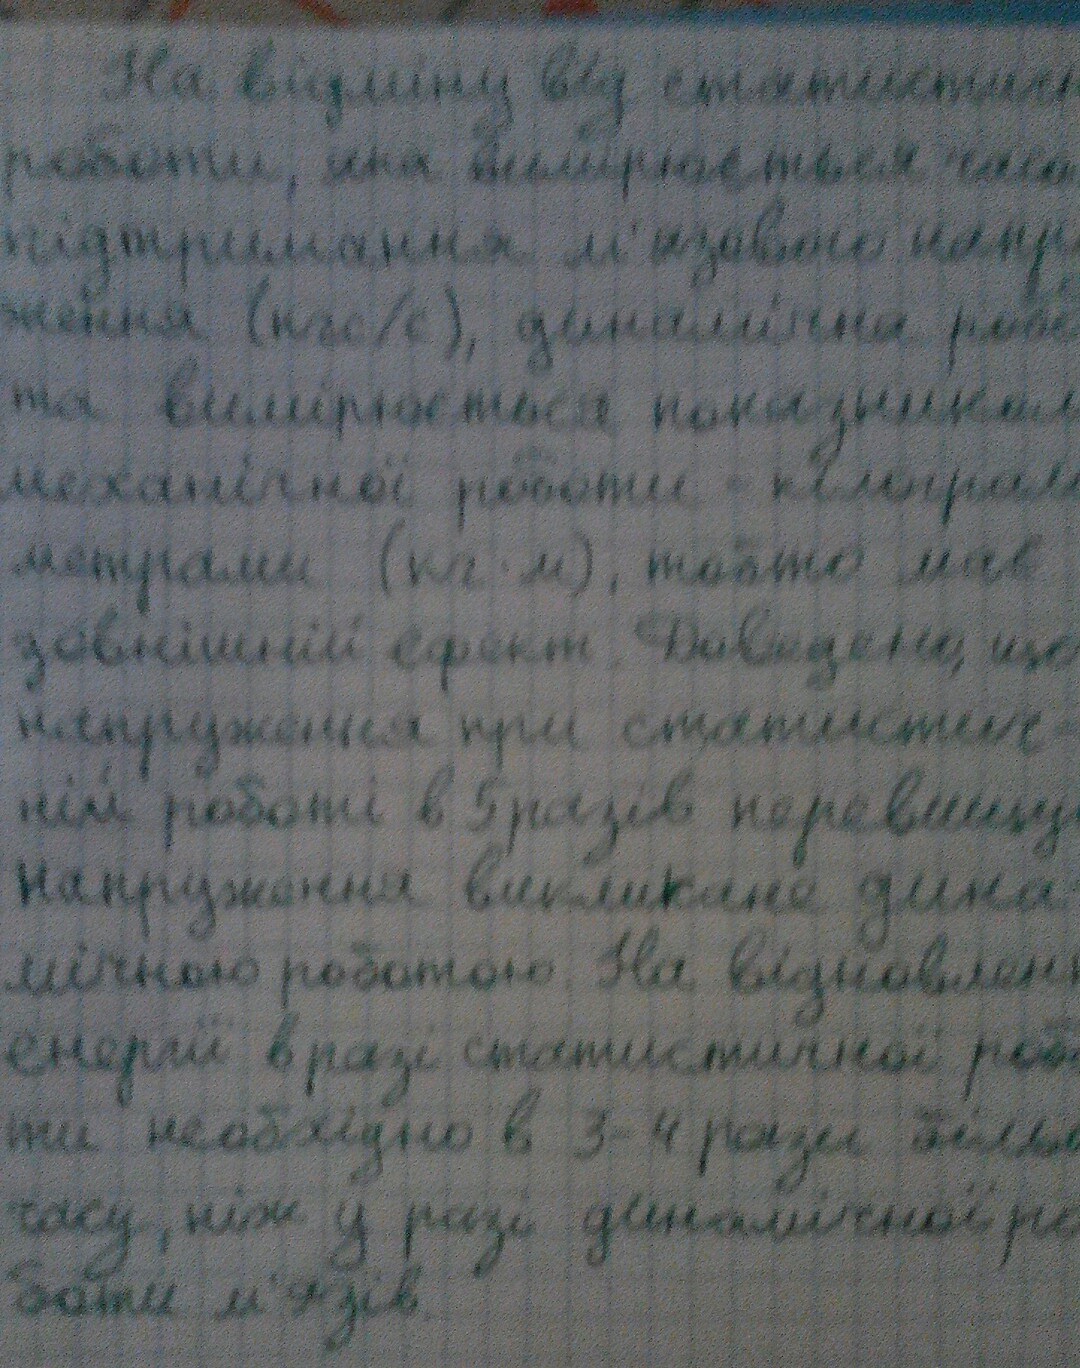 На відміну від статистичн
роботи, яка вимірюється часо
підтримання м'язового напр
ження (кгс/с), динамічна робо
та вимірюється показником
механічної роботи - кілограм
метрами (кг·м), тобто має
зовнішній ефект. Доведено, що
напруження при статистич-
ній роботі в 5 разів перевищує
напруження викликане дина-
мічною роботою. На відновленн
енергії в разі статистичної робо
ти необхідно в 3-4 рази більш
часу, ніж у разі динамічної ро
боти м'язів.